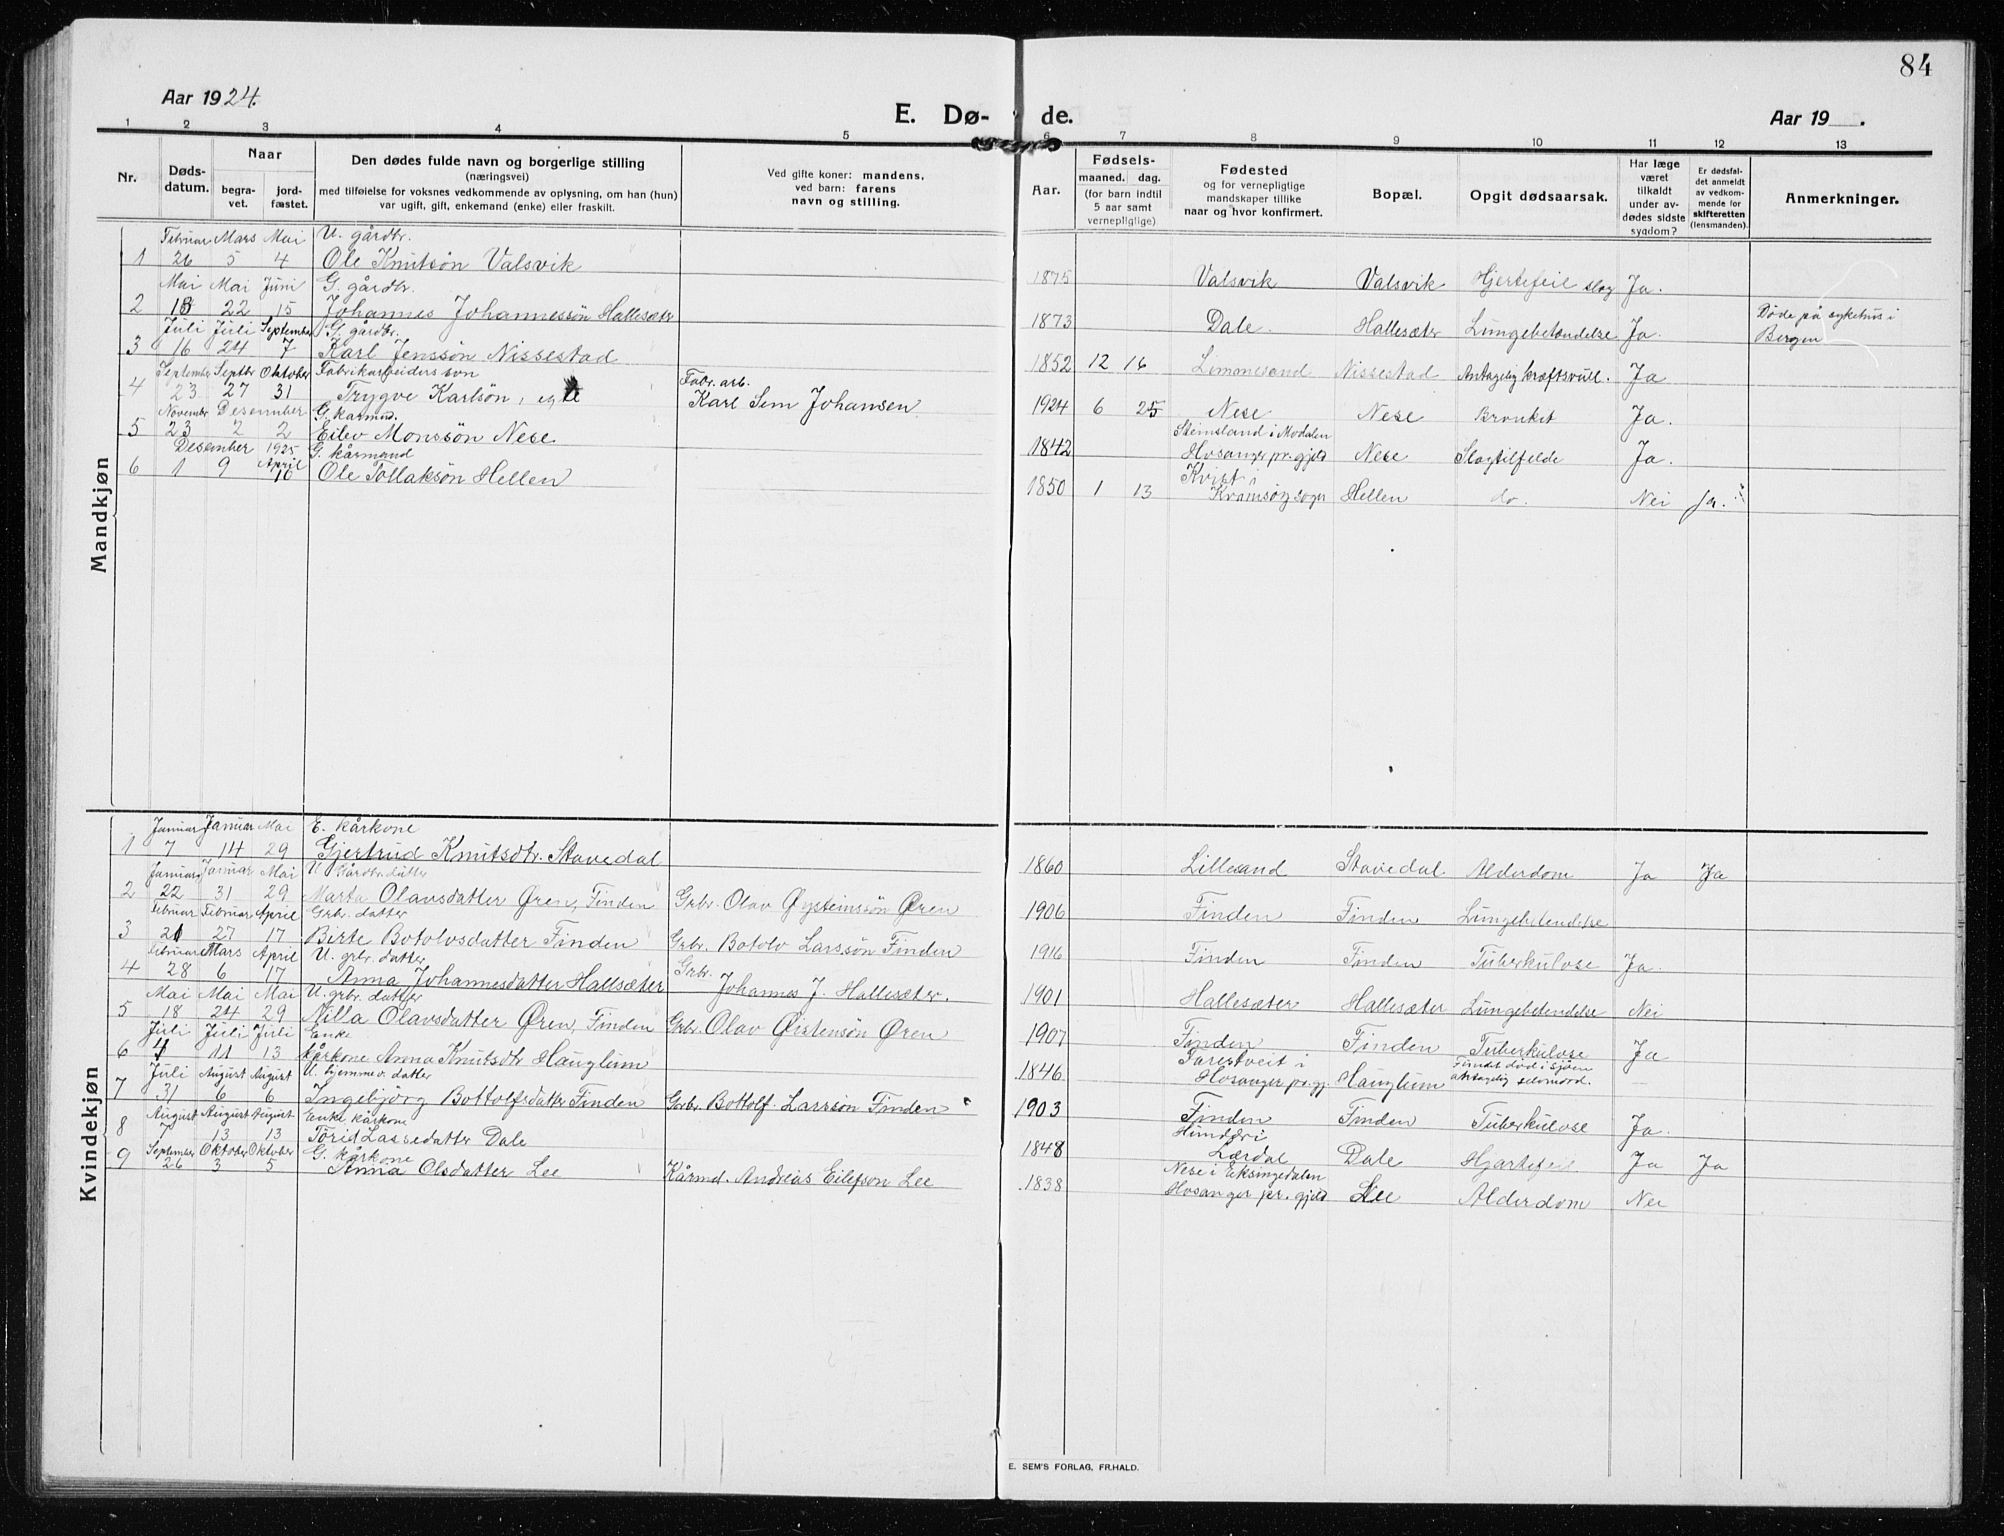 84
Aar 1924.
E. Dø- de.
Aar 19 .
1 2 3 4 5 6 7 8 9 10 11 12 13
Nr.
Døds-
datum.
Naar
begra-
vet.
jord-
fæstet.
Den dødes fulde navn og borgerlige stilling
(næringsvei)
med tilføielse for voksnes vedkommende av oplysning, om han (hun)
var ugift, gift, enkemand (enke) eller fraskilt.
Ved gifte koner: mandens.
ved barn: farens
navn og stilling.
Aar.
Fødsels-
maaned. dag.
(for barn indtil
5 aar samt
vernepligtige)
Fødested
og for vernepligtige
mandskaper tillike
naar og hvor konfirmert.
Bopæl.
Opgit dødsaarsak.
Har læge
været
tilkaldt
under av-
dødes sidste
sygdom?
Er dødsfal-
det anmeldt
av vedkom-
mende for
skifteretten
(lensmanden).
Anmerkninger.
Mandkjøn
Februar Mars Mai U. gårdbr.
1 26 5 4 Ole Knutsøn Valsvik 1875 Valsvik Valsvik Hjertefeil slag Ja.
Mai Mai Juni G. gårdbr.
2 18 22 15 Johannes Johannessøn Hallesæter 1873 Dale. Hallesæter Lungebetændelse Ja. Døde på sykehus i
Bergen
Juli Juli September G. gårdbr.
3 16 24 7 Karl Jenssøn Nissestad 1852 12 16 Limonesand Nissestad Antagelig kræftsvull. Ja
September Septbr Oktober Fabrikarbeiders søn Fabr. arb.
4 23 27 31 Trygve Karlsøn, Karl Sem Johansen 1924 6 25 Nese Nese Bronket Ja.
Novembr Desember G. kårmnd. Steinsland i Modalen
5 23 2 2 Eilev Monssøn Nese 1842 Hosanger pr.gjeld Nese Slagtilfelde Ja.
Desember 1925 April G. kårmand Kvist i
6 1 9 10 Ole Tollaksøn Hellen 1850 1 13 Kvamsøy sogn Hellen do. Nei Ja.
Kvindekjøn
Januar Januar Mai E. kårkone
1 7 14 29 Gjertrud Knutsdtr. Stavedal 1860 Lillesand Stavedal Alderdom Ja Ja
Januar Januar Mai U Gårdbr. datter
2 22 31 29 Marta Olavsdatter Øren, Finden Grbr. Olav Øysteinssøn Øren 1906 Finden Finden Lungebetendelse
Februar Februar April Grbr. datter
3 21 27 17 Birte Botolvsdatter Finden Grbr. Botolv Larssøn Finden 1916 Finden Finden Tuberkulose Ja.
Februar Mars April U. grbr. datter Grbr.
4 28 6 17 Anna Johannesdatter Hallsæter Johannes J. Hallesæter. 1901 Hallesæter Hallesæter Lungebetendelse Nei
Mai Mai Mai U. grbr. datter
5 18 24 29 Nilla Olavsdatter Øren, Finden Grbr. Olav Øistensøn Øren 1907 Finden Finden Tuberkulose Ja
Juli Juli Juli Enke Farestveit i Fundet død i sjøen
6 4 11 13 kårkone Anna Knutsdtr Hauglum 1846 Hosanger pr.gj. Hauglum antagelig selvmord. —
Juli August August U. hjemmev. datter
7 31 6 6 Ingebjørg Bottolfsdatter Finden Grbr. Bottolf Larssøn Finden 1903 Finden Finden Tuberkulose Ja.
August August August Enke kårkone Hunddri
8 7 13 13 Tørid Lassedatter Dale 1848 Lærdal Dale Hjartefeil Ja Ja
September Oktober Oktober G. kårkone Nese i Eksingedalen
9 26 3 5 Anna Olsdatter Lee Kårmd. Andreas Eilefson Lee 1838 Hosanger pr. gjeld Lee Alderdom Nei
E. SEM'S FORLAG, FR.HALD.